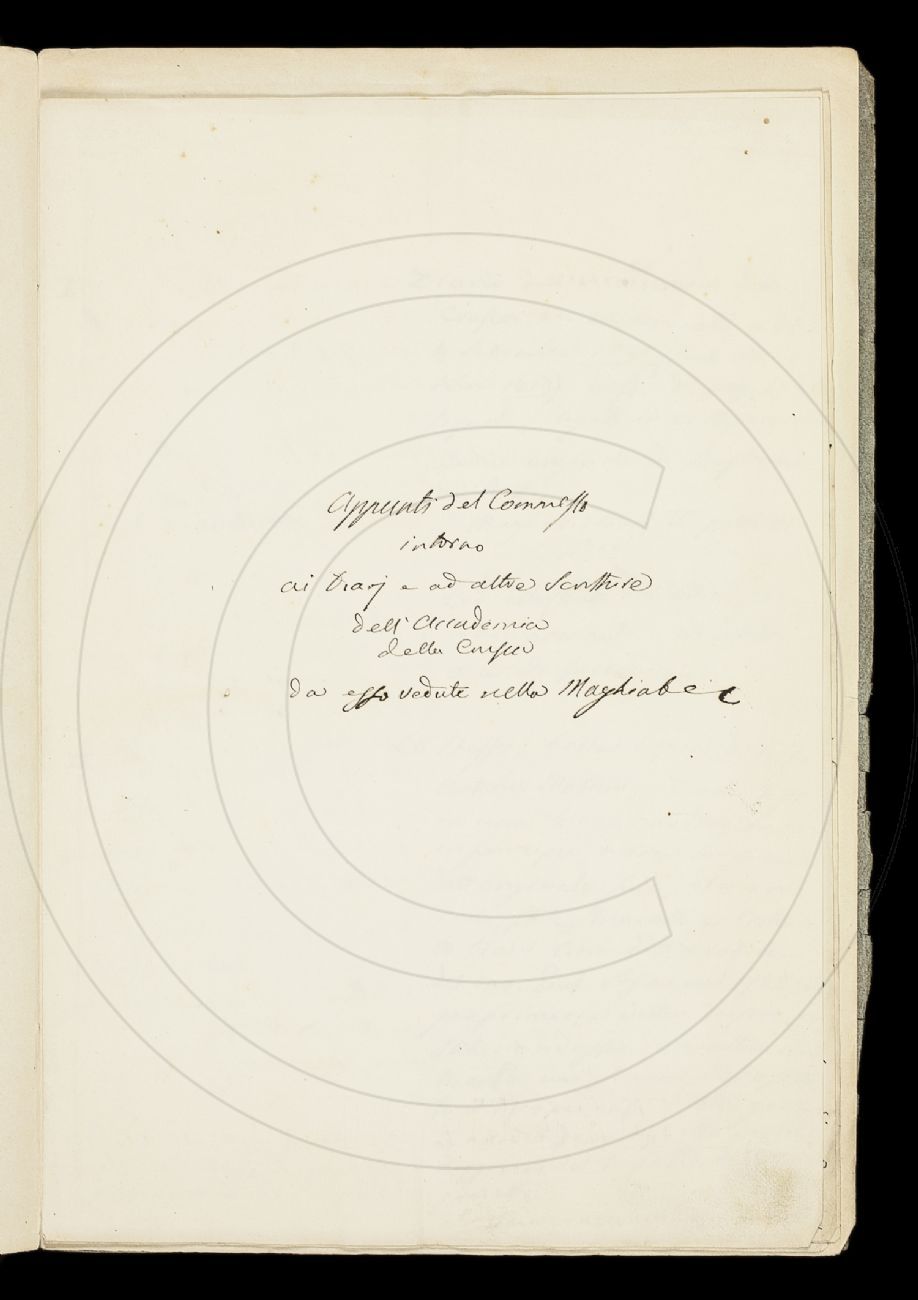 Appunti del Commesso
intorno
ai Diarj e ad altre Scritture
dell' Accademia
della Crusca
da esso vedute nella Maghiabec